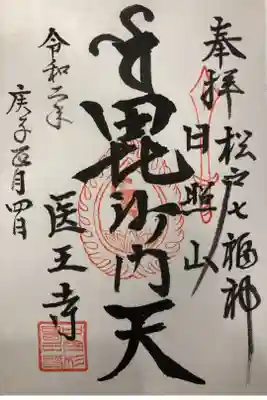 奉拝
松戸七福神
日照山
毘沙門天
医王寺
令和二年
庚子正月四日